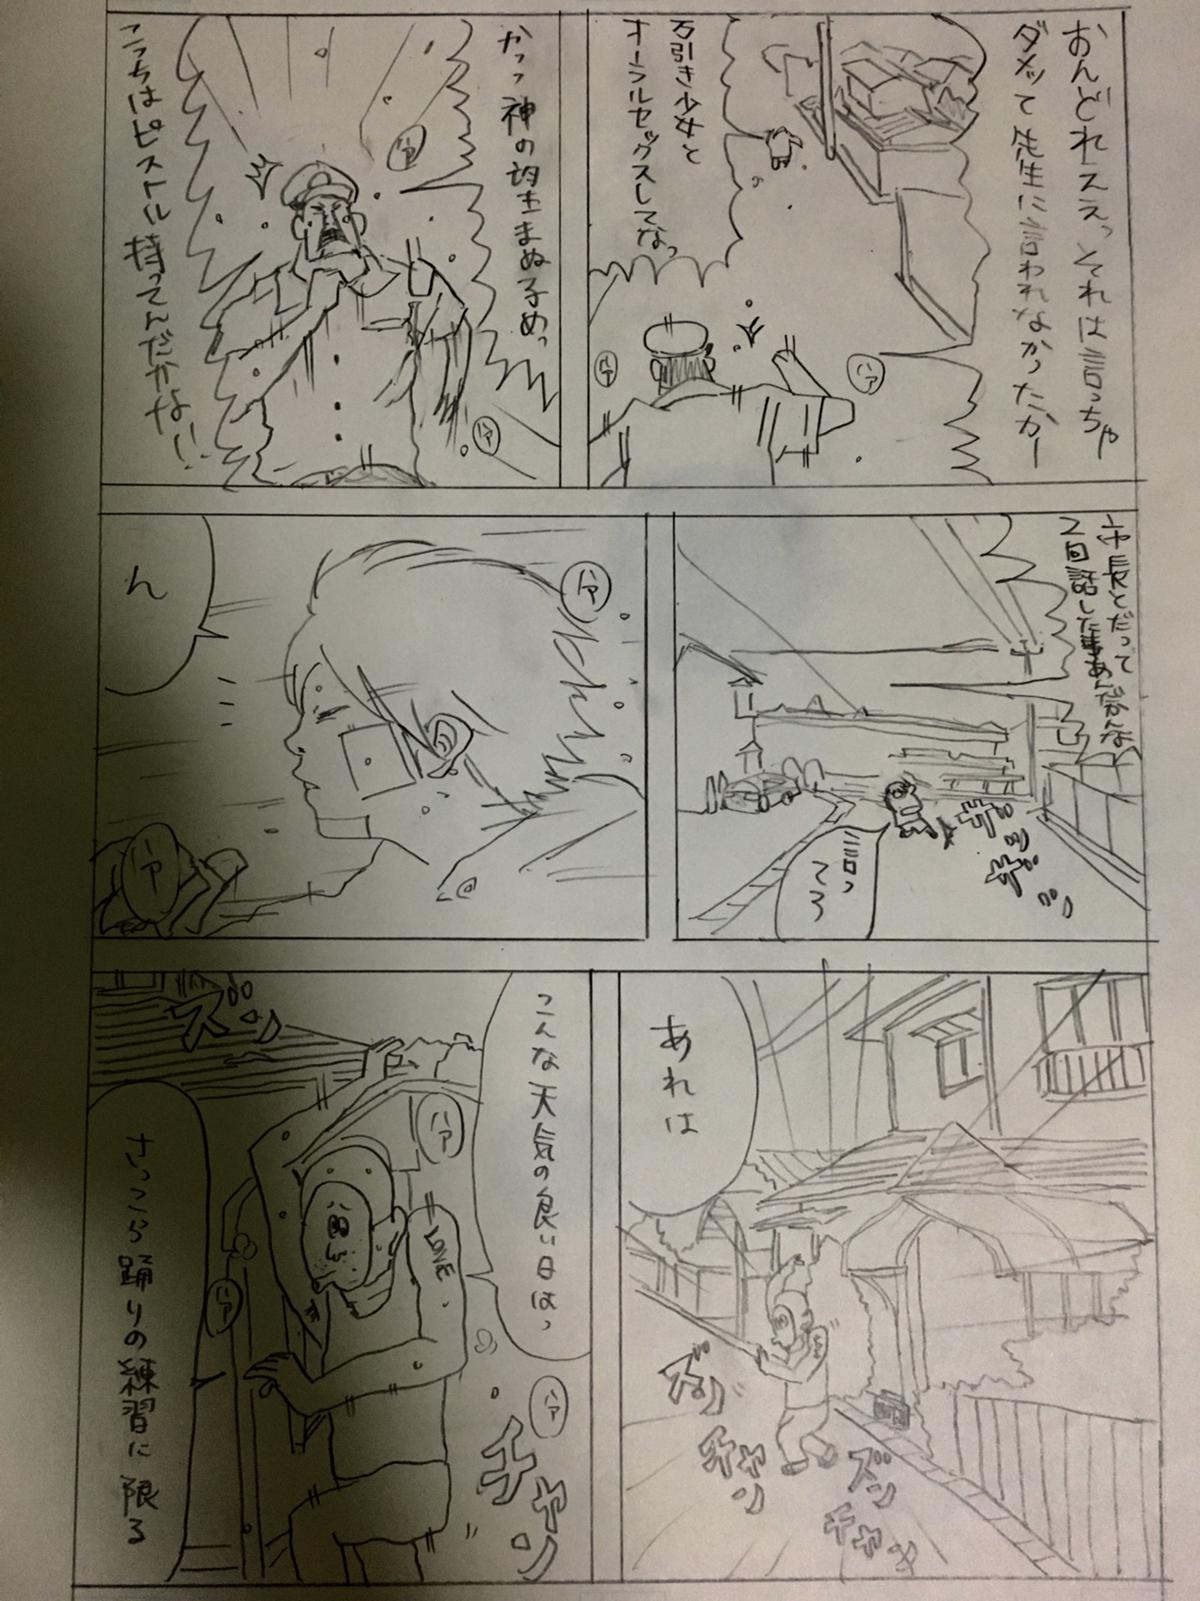 おんどれええっそれは言っちゃ
ダメッて先生に言われなかったかー
万引き少女と
オーラルセックスしてなっ
ハァ
ハァ
かっっ神の望まぬ子めっ
こっちはピストル持ってんだかな
ハァ
ハァ
市長とだって
2回話した事あんだかんな
言っ
てろ
ザッ
ザッ
ハァ
ん
ハァ
あれは
ズン
チャン
ズン
チャン
こんな天気の良い日はっ
ズン
ハァ
LOVE
ハァ
ハァ
チャン
さっこら踊りの練習に限る